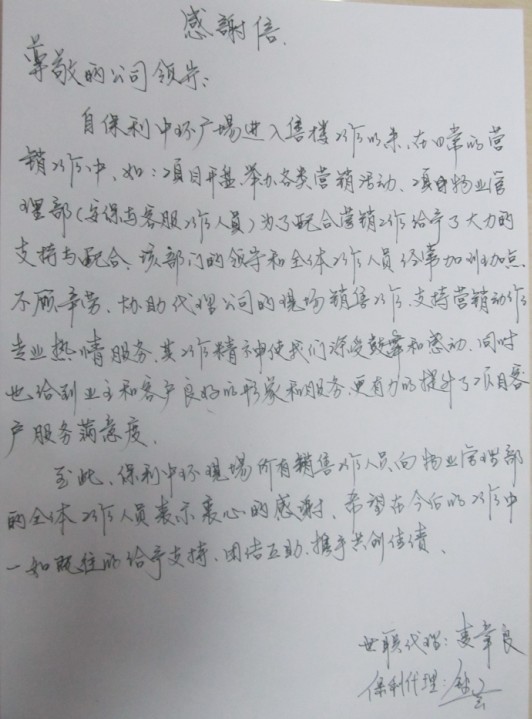 感謝信.
尊敬的公司领导:
自保利中环广场进入售楼工作以来,在日常的营
销工作中,如:项目开盘举办各类营销活动、项目物业管
理部(安保与客服工作人员)为了配合营销工作给予了大力的
支持与配合、该部门的领导和全体工作人员经常加班加点
不顾辛劳、协助代理公司的现场销售工作、支持营销动作、
专业热情服务、其工作精神使我们深受鼓舞和感动、同时
也给到业主和客户良好的形象和服务、更有力的提升了项目客
户服务满意度、
至此、保利中环现场所有销售工作人员、向物业管理部
的全体工作人员表示衷心的感谢、希望在今后的工作中
一如既往的给予支持、团结互助、携手共创佳绩、
世联代理:
保利代理: